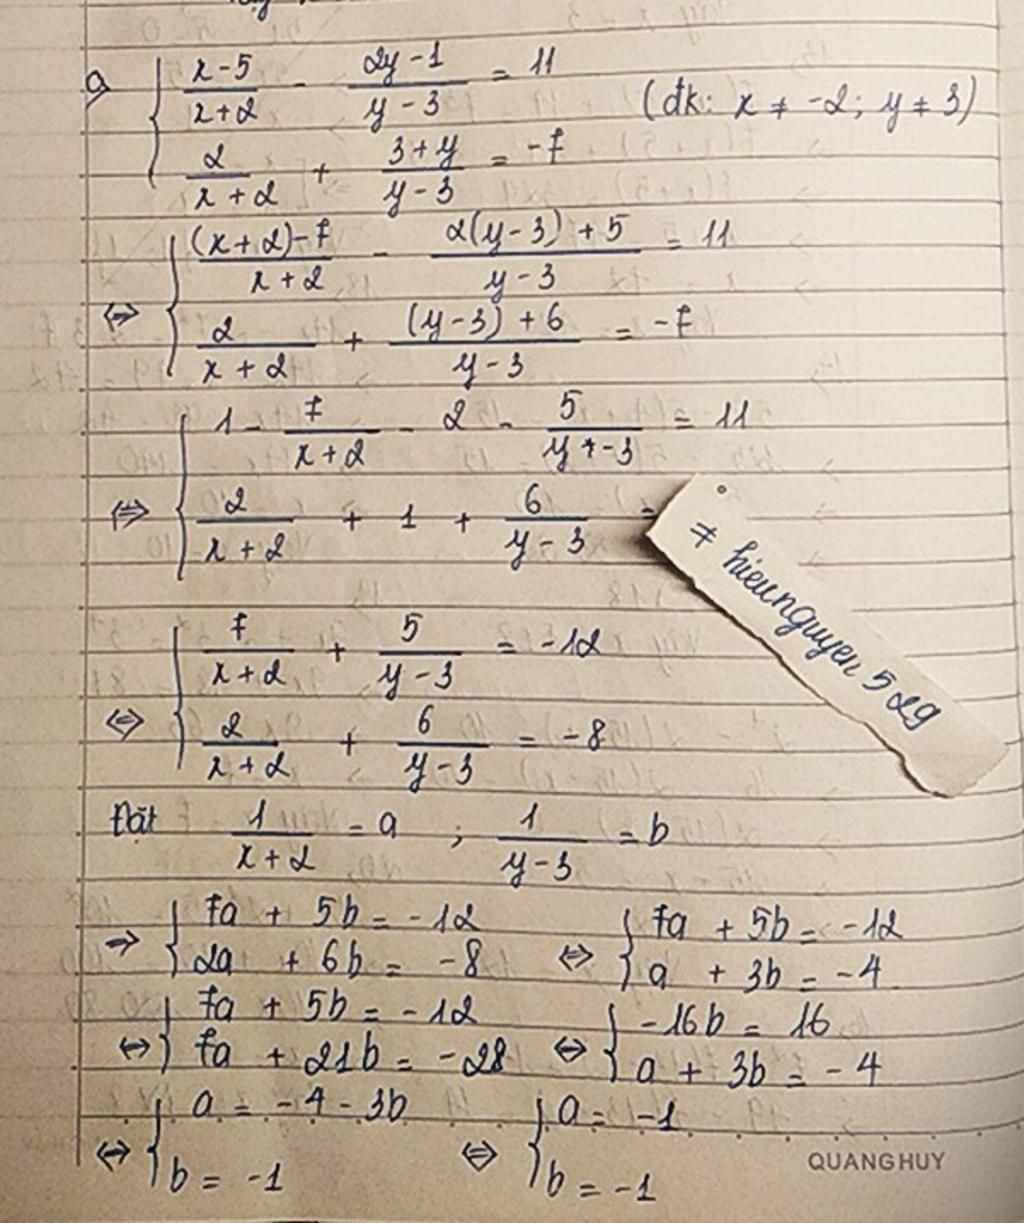 a) { (x-5)/(x+2) - (2y-1)/(y-3) = 11
(đk: x ≠ -2; y ≠ 3)
2/(x+2) + (3+y)/(y-3) = -7
⇔ { ((x+2)-7)/(x+2) - (2(y-3)+5)/(y-3) = 11
2/(x+2) + ((y-3)+6)/(y-3) = -7
⇔ { 1 - 7/(x+2) - 2 - 5/(y-3) = 11
2/(x+2) + 1 + 6/(y-3) =
≠ hieunguyen 529
⇔ { 7/(x+2) + 5/(y-3) = -12
2/(x+2) + 6/(y-3) = -8
Đặt 1/(x+2) = a ; 1/(y-3) = b
⇒ { 7a + 5b = -12
2a + 6b = -8
⇔ { 7a + 5b = -12
a + 3b = -4
⇔ { 7a + 5b = -12
7a + 21b = -28
⇔ { -16b = 16
a + 3b = -4
⇔ { a = -4 - 3b
b = -1
⇔ { a = -1
b = -1
QUANGHUY